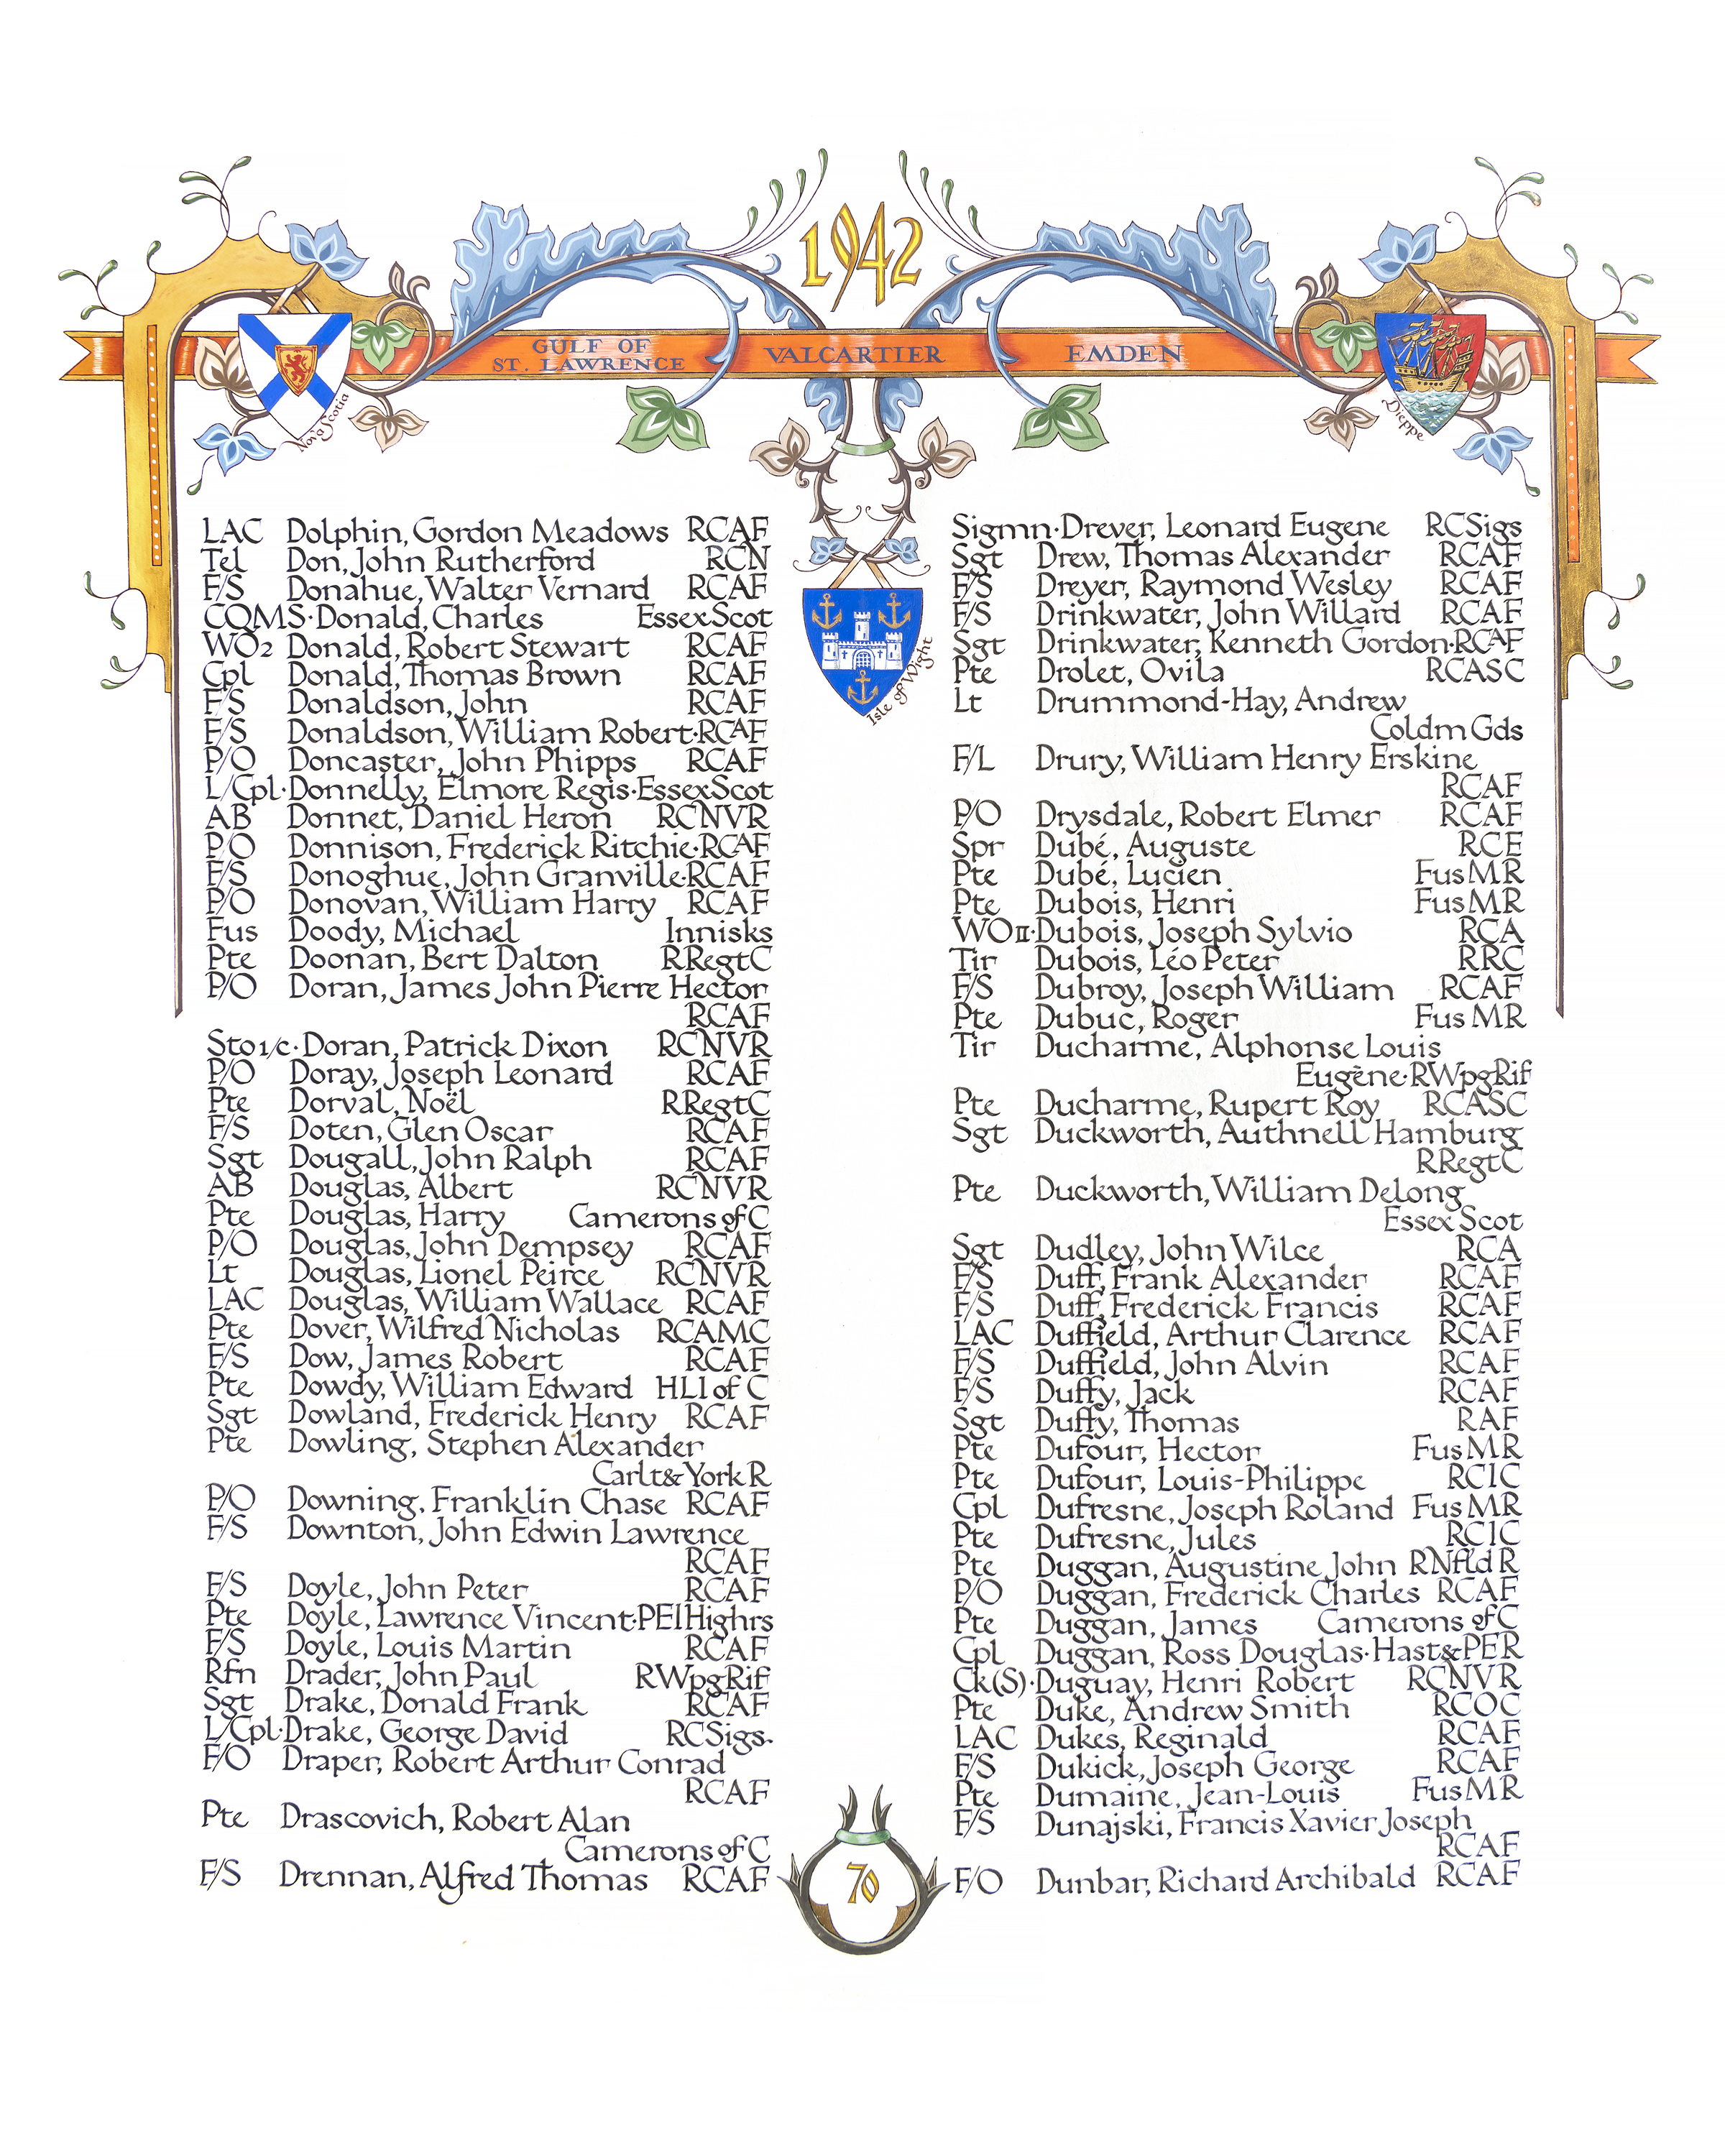 1942
GULF OF
ST. LAWRENCE
VALCARTIER
EMDEN
Nova Scotia
Dieppe
Isle of Wight
LAC Dolphin, Gordon Meadows RCAF
Tel Don, John Rutherford RCN
F/S Donahue, Walter Vernard RCAF
CQMS·Donald, Charles Essex Scot
WO2 Donald, Robert Stewart RCAF
Cpl Donald, Thomas Brown RCAF
F/S Donaldson, John RCAF
F/S Donaldson, William Robert·RCAF
P/O Doncaster, John Phipps RCAF
L/Cpl·Donnelly, Elmore Regis·Essex Scot
AB Donnet, Daniel Heron RCNVR
P/O Donnison, Frederick Ritchie·RCAF
F/S Donoghue, John Granville·RCAF
P/O Donovan, William Harry RCAF
Fus Doody, Michael Innisks
Pte Doonan, Bert Dalton RRegtC
P/O Doran, James John Pierre Hector
RCAF
Sto 1/c·Doran, Patrick Dixon RCNVR
P/O Doray, Joseph Leonard RCAF
Pte Dorval, Noël RRegtC
F/S Doten, Glen Oscar RCAF
Sgt Dougall, John Ralph RCAF
AB Douglas, Albert RCNVR
Pte Douglas, Harry Camerons of C
P/O Douglas, John Dempsey RCAF
Lt Douglas, Lionel Peirce RCNVR
LAC Douglas, William Wallace RCAF
Pte Dover, Wilfred Nicholas RCAMC
F/S Dow, James Robert RCAF
Pte Dowdy, William Edward HLI of C
Sgt Dowland, Frederick Henry RCAF
Pte Dowling, Stephen Alexander
Carlt & York R
P/O Downing, Franklin Chase RCAF
F/S Downton, John Edwin Lawrence
RCAF
F/S Doyle, John Peter RCAF
Pte Doyle, Lawrence Vincent·PEI Highrs
F/S Doyle, Louis Martin RCAF
Rfn Drader, John Paul RWpgRif
Sgt Drake, Donald Frank RCAF
L/Cpl·Drake, George David RCSigs.
F/O Draper, Robert Arthur Conrad
RCAF
Pte Drascovich, Robert Alan
Camerons of C
F/S Drennan, Alfred Thomas RCAF
Sigmn·Drever, Leonard Eugene RCSigs
Sgt Drew, Thomas Alexander RCAF
F/S Dreyer, Raymond Wesley RCAF
F/S Drinkwater, John Willard RCAF
Sgt Drinkwater, Kenneth Gordon·RCAF
Pte Drolet, Ovila RCASC
Lt Drummond-Hay, Andrew
Coldm Gds
F/L Drury, William Henry Erskine
RCAF
P/O Drysdale, Robert Elmer RCAF
Spr Dubé, Auguste RCE
Pte Dubé, Lucien Fus MR
Pte Dubois, Henri Fus MR
WOII·Dubois, Joseph Sylvio RCA
Tir Dubois, Léo Peter RRC
F/S Dubroy, Joseph William RCAF
Pte Dubuc, Roger Fus MR
Tir Ducharme, Alphonse Louis
Eugène·RWpgRif
Pte Ducharme, Rupert Roy RCASC
Sgt Duckworth, Authnell Hamburg
RRegtC
Pte Duckworth, William Delong
Essex Scot
Sgt Dudley, John Wilce RCA
F/S Duff, Frank Alexander RCAF
F/S Duff, Frederick Francis RCAF
LAC Duffield, Arthur Clarence RCAF
F/S Duffield, John Alvin RCAF
F/S Duffy, Jack RCAF
Sgt Duffy, Thomas RAF
Pte Dufour, Hector Fus MR
Pte Dufour, Louis-Philippe RCIC
Cpl Dufresne, Joseph Roland Fus MR
Pte Dufresne, Jules RCIC
Pte Duggan, Augustine John RNfld R
P/O Duggan, Frederick Charles RCAF
Pte Duggan, James Camerons of C
Cpl Duggan, Ross Douglas·Hast & PER
Ck(S)·Duguay, Henri Robert RCNVR
Pte Duke, Andrew Smith RCOC
LAC Dukes, Reginald RCAF
F/S Dukick, Joseph George RCAF
Pte Dumaine, Jean-Louis Fus MR
F/S Dunajski, Francis Xavier Joseph
RCAF
F/O Dunbar, Richard Archibald RCAF
70